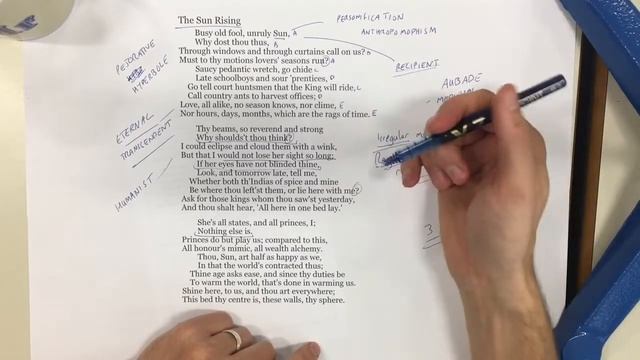 The Sun Rising
PERSONIFICATION
Busy old fool, unruly Sun, A
ANTHROPOMORPHISM
Why dost thou thus, B
Through windows and through curtains call on us? B
Must to thy motions lovers' seasons run? A
RECIPIENT
PEJORATIVE
HYPERBOLE
Saucy pedantic wretch, go chide C
Late schoolboys and sour 'prentices, D
AUBADE
Go tell court huntsmen that the King will ride, C
Call country ants to harvest offices; D
Love, all alike, no season knows, nor clime, E
Nor hours, days, months, which are the rags of time. E
ETERNAL
TRANSCENDENT
Thy beams, so reverend and strong
Why shouldst thou think?
Irregular
I could eclipse and cloud them with a wink,
But that I would not lose her sight so long;
If her eyes have not blinded thine,
Look, and tomorrow late, tell me,
HUMANIST
Whether both th'Indias of spice and mine
Be where thou left'st them, or lie here with me?
Ask for those kings whom thou saw'st yesterday,
And thou shalt hear, 'All here in one bed lay.'
She's all states, and all princes, I;
3
Nothing else is.
Princes do but play us; compared to this,
All honour's mimic, all wealth alchemy.
Thou, Sun, art half as happy as we,
In that the world's contracted thus;
Thine age asks ease, and since thy duties be
To warm the world, that's done in warming us.
Shine here, to us, and thou art everywhere;
This bed thy centre is, these walls, thy sphere.